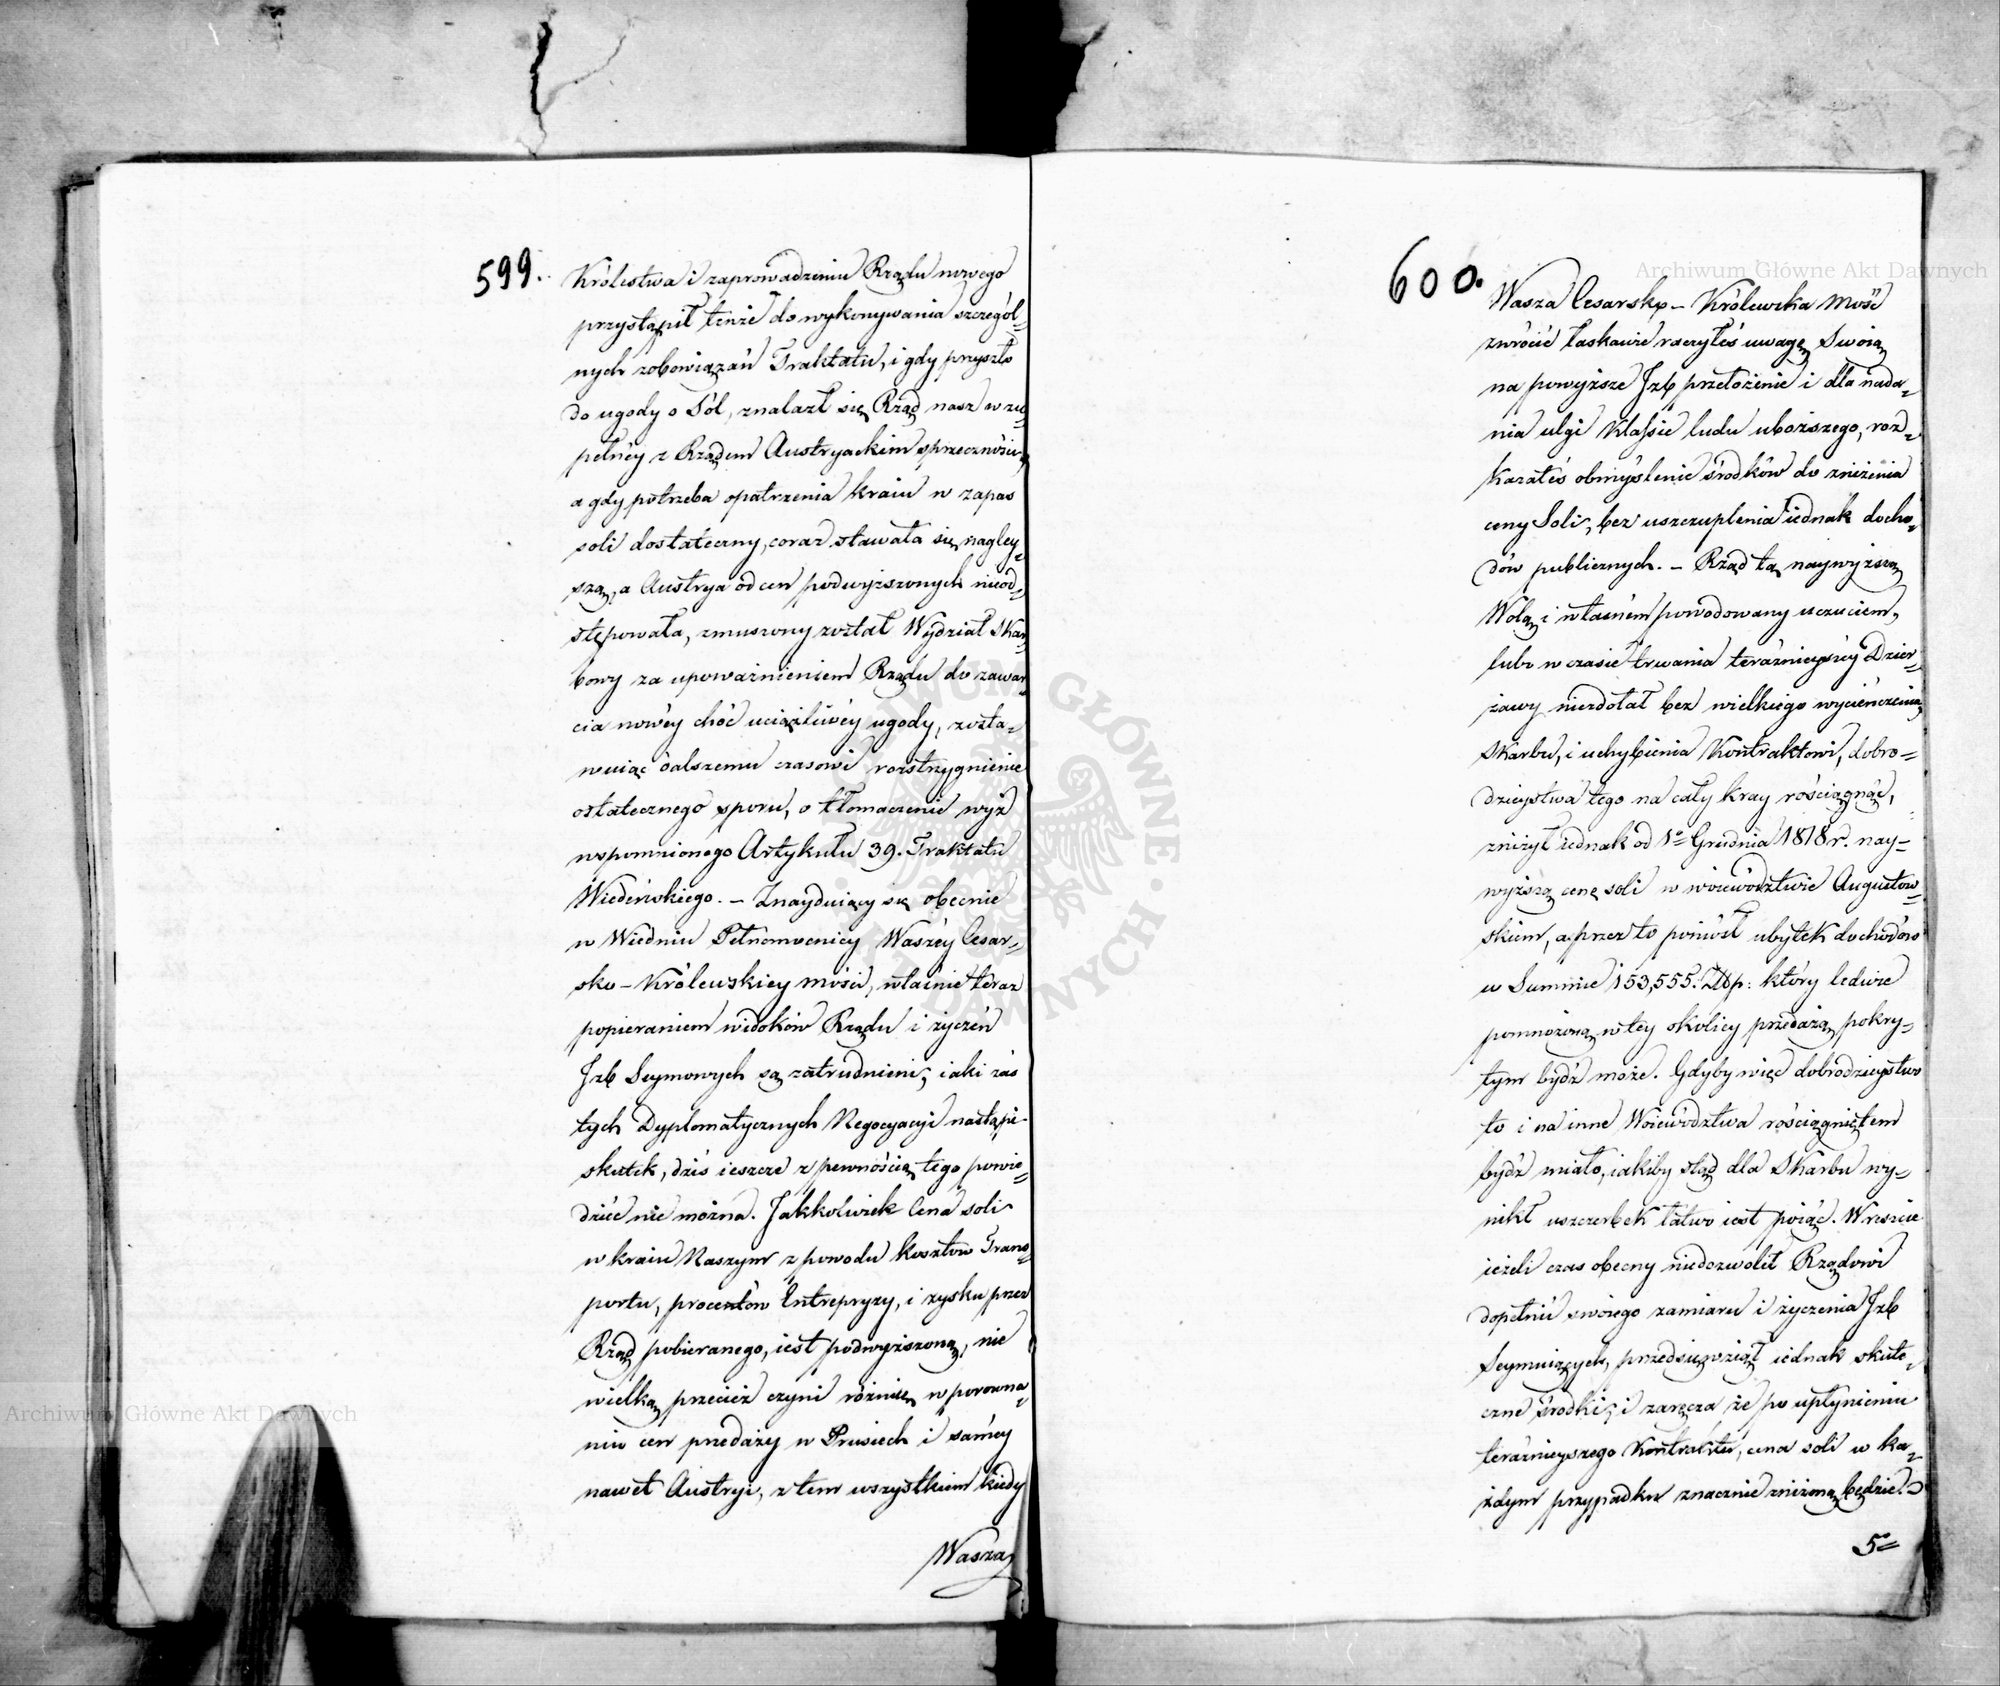 599.
Królestwa i zaprowadzeniu Rządu nowego
przystąpił tenże do wykonywania szczegól=
nych zobowiązań Traktatu, i gdy przyszło
do ugody o Sól, znalazł się Rząd nasz w zu=
pełnéy z Rządem Austryackim sprzeczności,
a gdy potrzeba opatrzenia kraiu w zapas
soli dostateczny, coraz stawała się nagley=
szą, a Austrya od cen podwyższonych nieod=
stępowała, zmuszony został Wydział Skar=
bowy za upoważnieniem Rządu do zawar=
cia nowéy choć uciążliwéy ugody, zosta=
wuiąc dalszemu czasowi rozstrzygnienie
ostatecznego sporu, o tłomaczenie wyż
wspomnionego Artykułu 39. Traktatu
Wiedeńskiego. – Znayduiący się obecnie
w Wiedniu Pełnomocnicy Waszéy Cesar=
sko – Królewskiey mości, właśnie teraz
popieraniem widoków Rządu i życzeń
Jzb Seymowych są zatrudnieni; iaki zaś
tych Dyplomatycznych Negocyacyi nastąpi
skutek, dziś ieszcze z pewnością tego powie=
dzieć nie można. Jakkolwiek Cena soli
w kraiu Naszym z powodu kosztów Trans=
portu, procentów Entrepryzy, i zysku przez
Rząd pobieranego, iest podwyższoną, nie
wielką przecież czyni różnicę w porówna=
niu cen przedaży w Prusiech i saméy
nawet Austryi, z tem wszystkiem kiedy
Wasza
600.
Wasza Cesarsko – Królewska Mość
zwrócić łaskawie raczyłeś uwagę Swoią
na powyższe Jzb przełożenie i dla nada=
nia ulgi Klassie ludu uboższego, roz=
kazałeś obmyślenie środków do zniżenia
ceny Soli, bez uszczuplenia iednak docho=
dów publicznych. – Rząd tą naywyższą
Wolą i własném powodowany uczuciem,
lubo w czasie trwania teraźnieyszéy Dzier=
żawy niezdołał bez wielkiego wycieńczenia
Skarbu, i uchybienia Kontraktowi, dobro=
dzieystwa tego na cały kray rościągnąć,
zniżył iednak od 1º Grudnia 1818 r. nay=
wyższą cenę soli w woiewództwie Augustow=
skiem, a przez to poniósł ubytek dochodów
w Summie 153,555. Złłp: który ledwie
pomnożoną w tey okolicy przedażą pokry=
tym bydź może. Gdyby więc dobrodzieystwo
to i na inne Woiewództwa rościągniętem
bydź miało, iakiby stąd dla Skarbu wy=
nikł uszczerbek łatwo iest poiąć. Wreszcie
ieżeli czas obecny niedozwolił Rządowi
dopełnić swoiego zamiaru i życzenia Jzb
Seymuiących, przedsięwziął iednak skute=
czne środki; i zaręcza że po upłynieniu
teraźnieyszego Kontraktu, cena soli w ka=
żdym przypadku znacznie zniżoną będzie.
5º
Archiwum Główne Akt Dawnych
Archiwum Główne Akt Dawnych